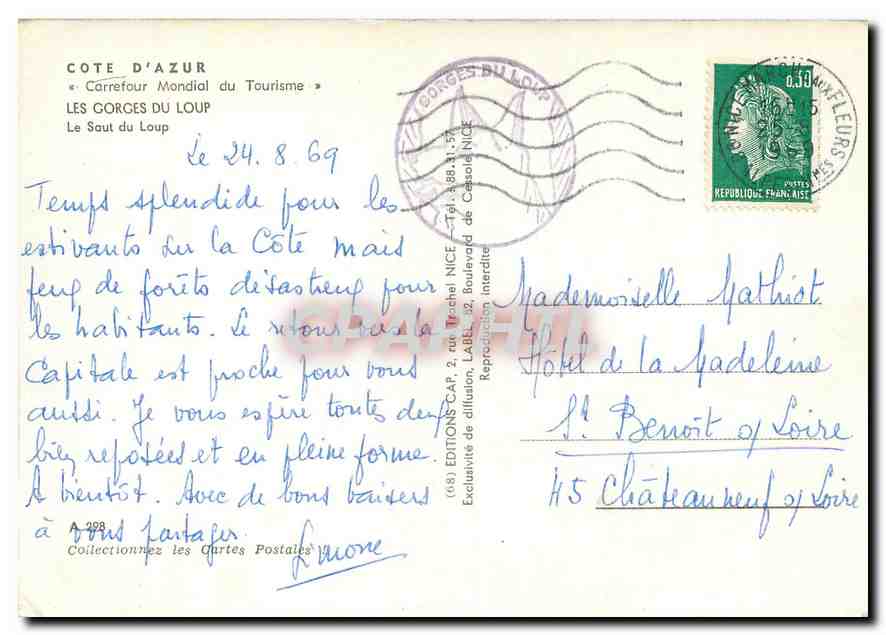 COTE D'AZUR
« Carrefour Mondial du Tourisme »
LES GORGES DU LOUP
Le Saut du Loup
Le 24.8.69
Temps splendide pour les
estivants sur la Côte mais
feux de forêts désastreux pour
les habitants. Le retour vers la
Capitale est proche pour vous
aussi. Je vous espère toutes deux
bien reposées et en pleine forme.
A bientôt. Avec de bons baisers
à vous partager.
Simone
A 298
Collectionnez les Cartes Postales
(68) EDITIONS CAP, 2, rue Trachel NICE — Tél. 88.31.57
Exclusivité de diffusion, LABEL, 82, Boulevard de Cessole NICE
Reproduction interdite
GORGES DU LOUP
0,30
POSTES
REPUBLIQUE FRANÇAISE
NICE MARCHE AUX FLEURS
Mademoiselle Mathiot
Hôtel de la Madeleine
St Benoît s/ Loire
45 Châteauneuf s/ Loire
CPAPHIL